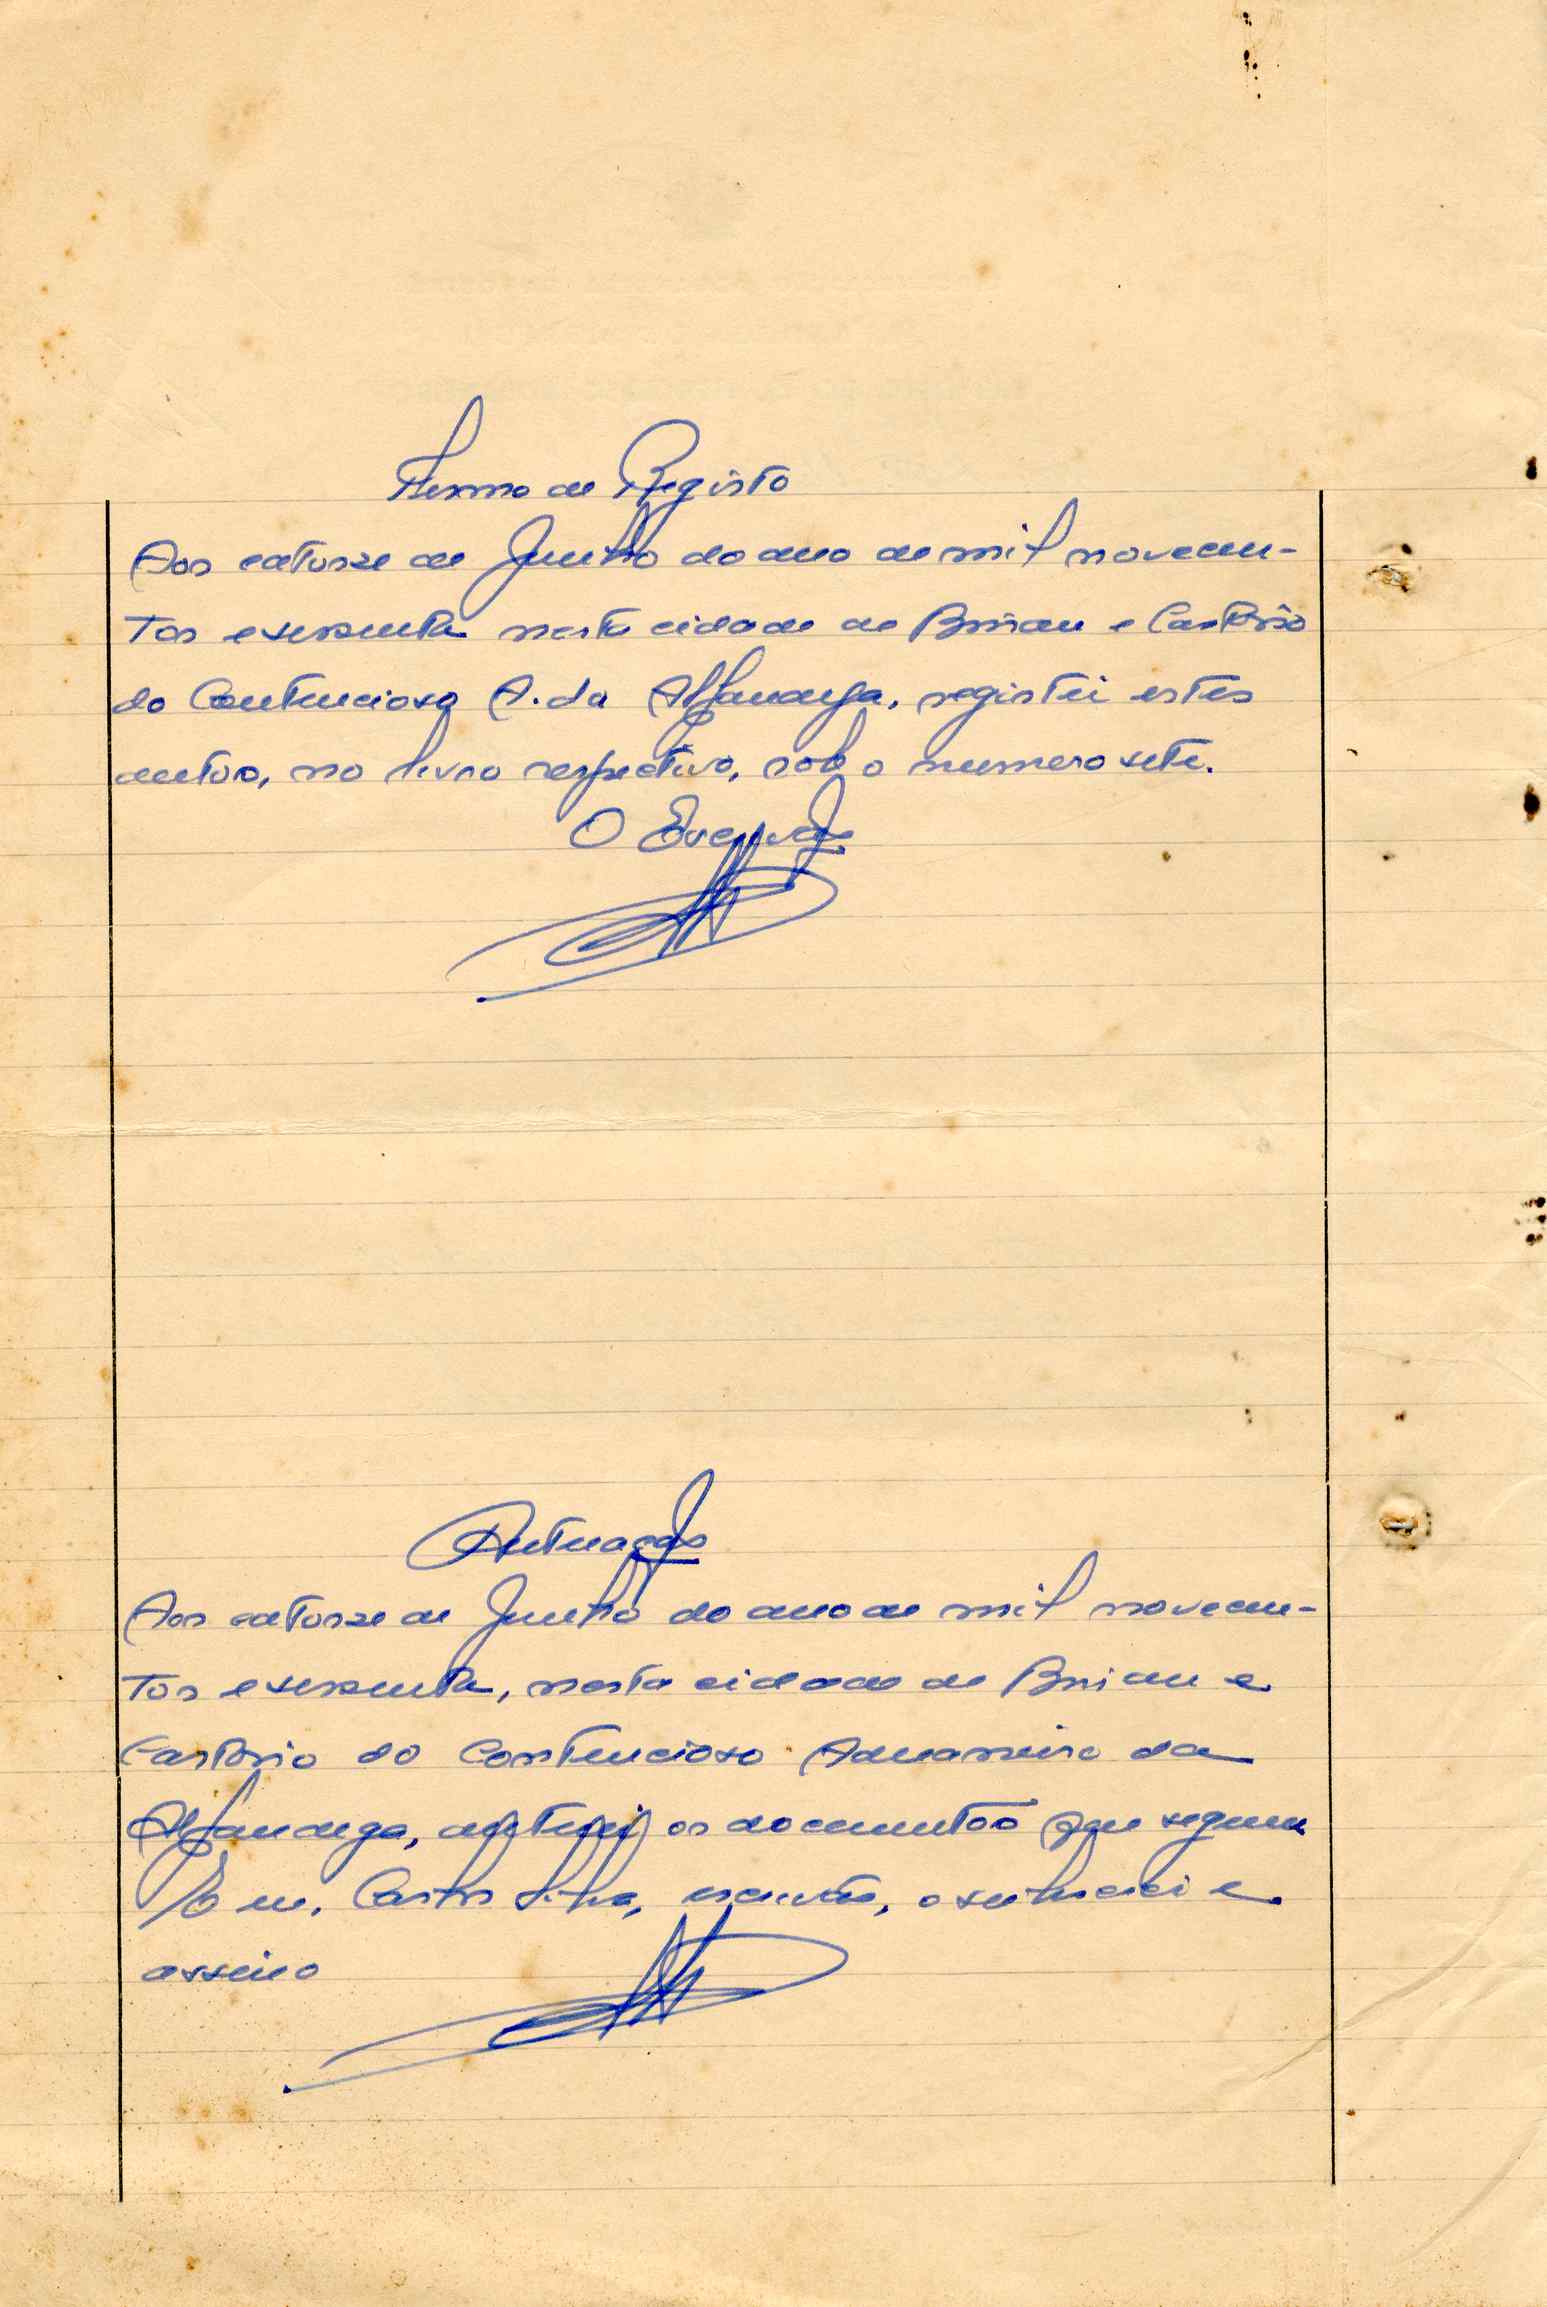 Termo de Registo
Aos catorze de Junho do ano de mil novecen-
tos e sessenta nesta cidade de Bissau e Cartório
do Contencioso A. da Alfandega, registei estes
autos, no livro respectivo, sob o numero sete.
O Escrivão
Autuação
Aos catorze de Junho do ano de mil novecen-
tos e sessenta, nesta cidade de Bissau e
Cartório do Contencioso Aduaneiro da
Alfandega, autuei os documentos que seguem
E eu, Castro Silva, escrivão, o subscrevi e
assino